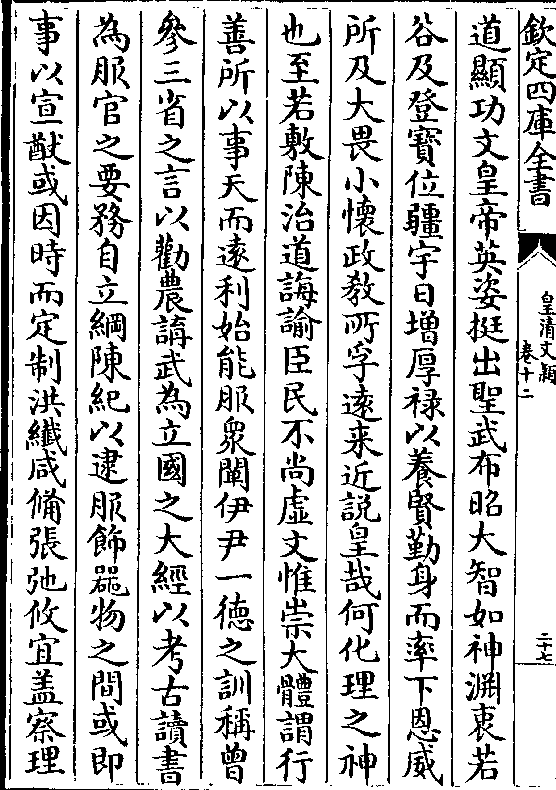 欽定四庫全書
皇清文穎
卷十二
二十七
道顯功文皇帝英姿挺出聖武布昭大智如神淵衷若
谷及登寶位疆宇日增厚禄以養賢勤身而率下恩威
所及大畏小懷政教所孚逺来近説皇哉何化理之神
也至若敷陳治道誨諭臣民不尚虚文惟崇大體謂行
善所以事天而逺利始能服衆闡伊尹一德之訓稱曽
參三省之言以勸農講武為立國之大經以考古讀書
為服官之要務自立綱陳紀以逮服飾噐物之間或即
事以宣猷或因時而定制洪纎咸備張弛攸宜盖察理